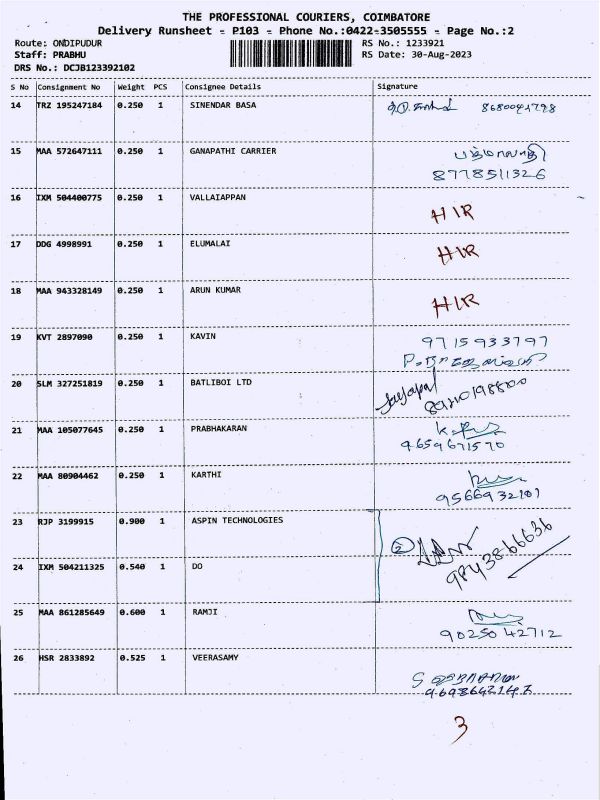 THE PROFESSIONAL COURIERS, COIMBATORE
Delivery Runsheet - P103 - Phone No.:0422-3505555 - Page No.:2
Route: ONDIPUDUR RS No.: 1233921
Staff: PRABHU RS Date: 30-Aug-2023
DRS No.: DCJB123392102
S No Consignment No Weight PCS Consignee Details Signature
14 TRZ 195247184 0.250 1 SINENDAR BASA
15 MAA 572647111 0.250 1 GANAPATHI CARRIER
8778511326
16 IXM 504400775 0.250 1 VALLAIAPPAN HIR
17 DDG 4998991 0.250 1 ELUMALAI HIR
18 MAA 943328149 0.250 1 ARUN KUMAR HIR
19 KVT 2897090 0.250 1 KAVIN 9715933797
20 SLM 327251819 0.250 1 BATLIBOI LTD Jayapal
21 MAA 105077645 0.250 1 PRABHAKARAN
9659671570
22 MAA 80904462 0.250 1 KARTHI
9566932101
23 RJP 3199915 0.900 1 ASPIN TECHNOLOGIES
2
9843866636
24 IXM 504211325 0.540 1 DO
25 MAA 861285649 0.600 1 RAMJI
9025042712
26 HSR 2833892 0.525 1 VEERASAMY
3